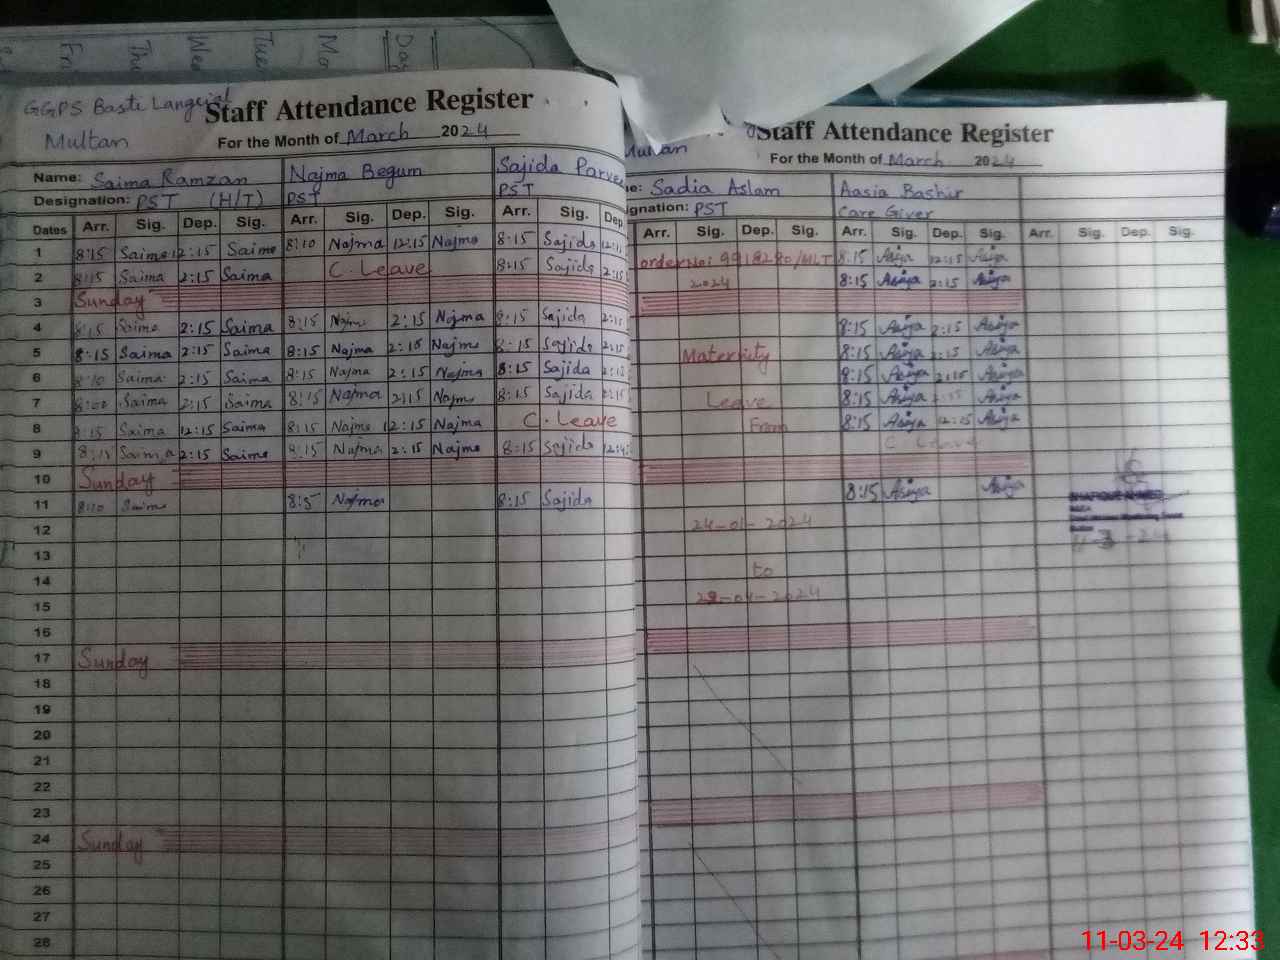 GGPS Basti Langrial
Multan
Staff Attendance Register
For the Month of March 2024
Name: Saima Ramzan Najma Begum Sajida Parve
Designation: PST (H/T) PST PST
Dates Arr. Sig. Dep. Sig. Arr. Sig. Dep. Sig. Arr. Sig. Dep.
1 8:15 Saima 12:15 Saima 8:10 Najma 12:15 Najma 8:15 Sajida 12:1
2 8:15 Saima 2:15 Saima C. Leave 8:15 Sajida 2:15
3 Sunday
4 8:15 Saima 2:15 Saima 8:15 Najma 2:15 Najma 8:15 Sajida 2:1
5 8:15 Saima 2:15 Saima 8:15 Najma 2:15 Najma 8:15 Sajida 2:15
6 8:10 Saima 2:15 Saima 8:15 Najma 2:15 Najma 8:15 Sajida 2:1
7 Saima 2:15 Saima 8:15 Najma 2:15 Najma 8:15 Sajida 2:15
8 8:15 Saima 12:15 Saima 8:15 Najma 12:15 Najma C. Leave
9 Saima 2:15 Saima 8:15 Najma 2:15 Najma 8:15 Sajida
10 Sunday
11 8:10 Saima Najma 8:15 Sajida
12
13
14
15
16
17 Sunday
18
19
20
21
22
23
24 Sunday
25
26
27
28
Multan
Staff Attendance Register
For the Month of March 2024
e: Sadia Aslam Aasia Bashir
ignation: PST Care Giver
Arr. Sig. Dep. Sig. Arr. Sig. Dep. Sig. Arr. Sig. Dep. Sig.
order No: 8:15 Asiya 12:15 Asiya
2024 8:15 Asiya 2:15 Asiya
8:15 Asiya 2:15 Asiya
Maternity 8:15 Asiya 2:15 Asiya
8:15 Asiya 2:15 Asiya
Leave 8:15 Asiya 2:15 Asiya
From 8:15 Asiya 12:15 Asiya
C Leave
8:15 Asiya Asiya
24-01-2024
to
-04-2024
11-3-24
11-03-24 12:33